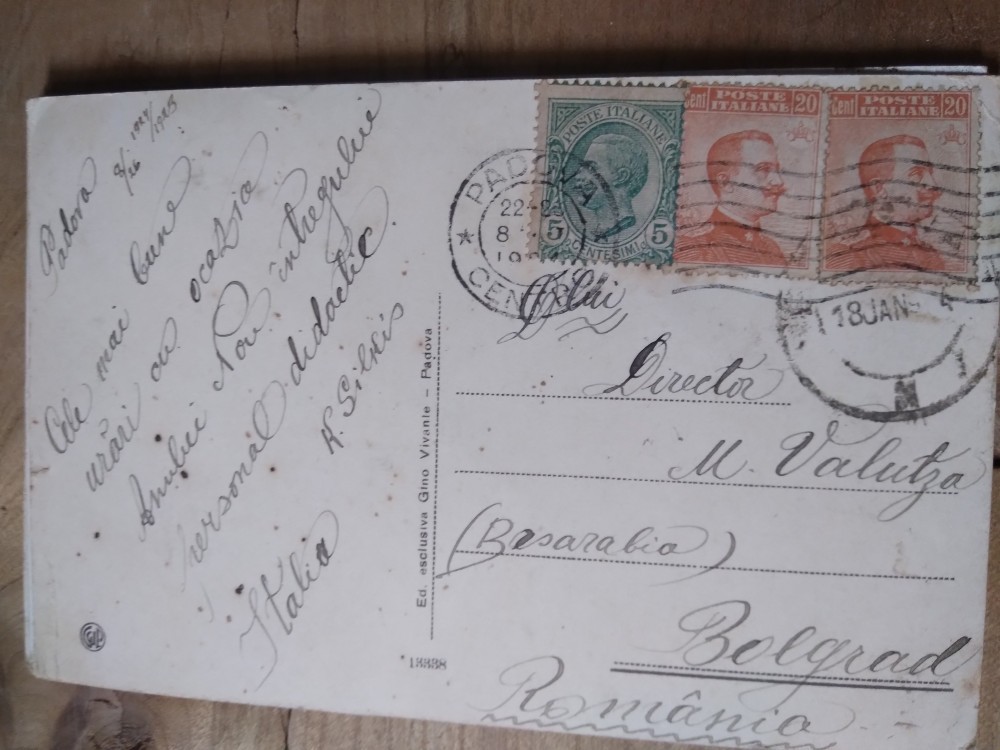 Padova
1924/1925
Cele mai bune
urări cu ocazia
Anului Nou întregului
personal didactic.
K. Silkis
Italia
Ed. esclusiva Gino Vivante – Padova
13338
POSTE ITALIANE
5 CENTESIMI 5
Cent POSTE 20
ITALIANE
Cent POSTE 20
ITALIANE
PADOVA
22-
8
CEN
18 JAN
Director
M. Valutza
(Basarabia)
Bolgrad
România